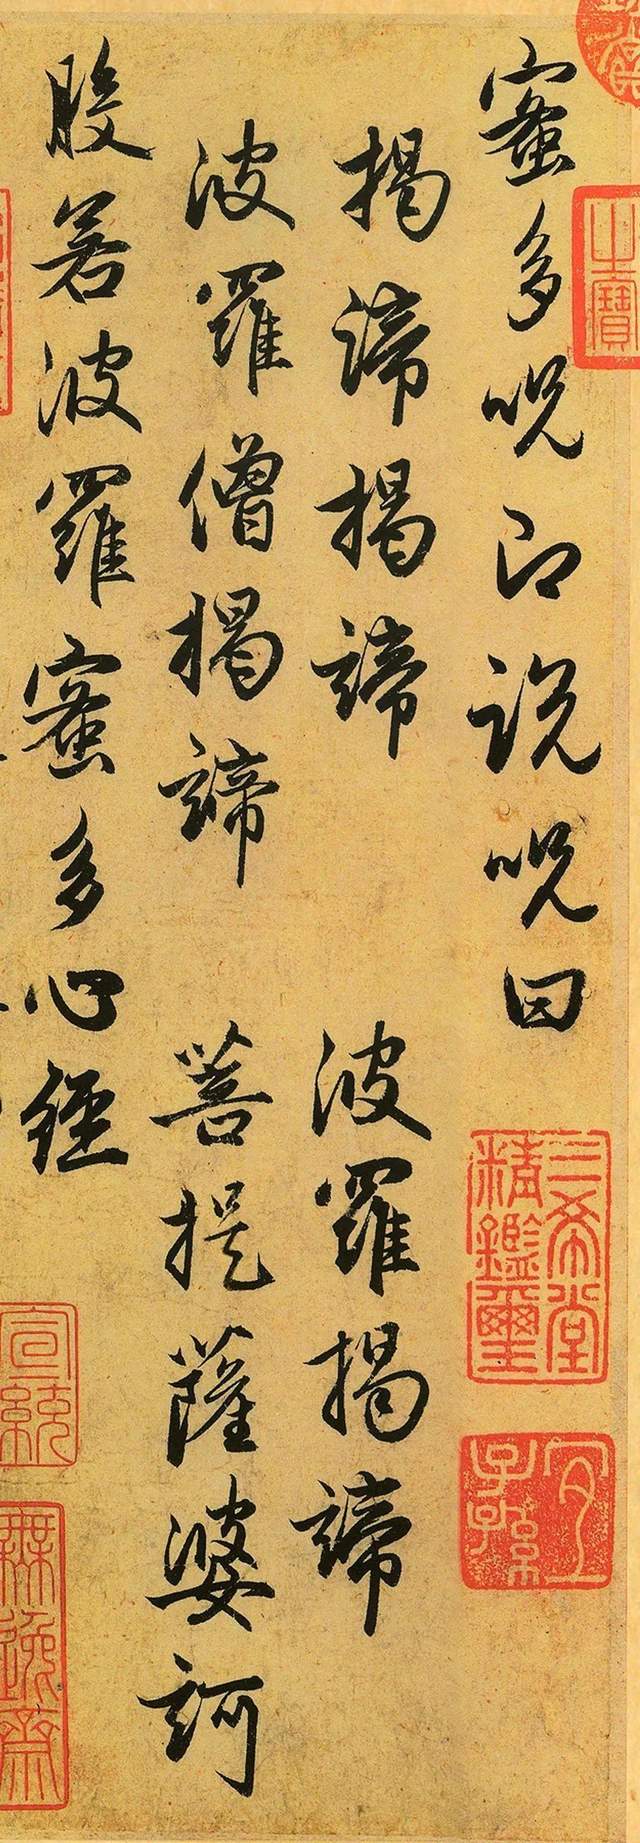 蜜多呪即說呪曰
揭諦揭諦 波羅揭諦
波羅僧揭諦 菩提薩婆訶
般若波羅蜜多心經
之寶
三希堂
精鑑璽
宜子孫
宣統
無逸齋